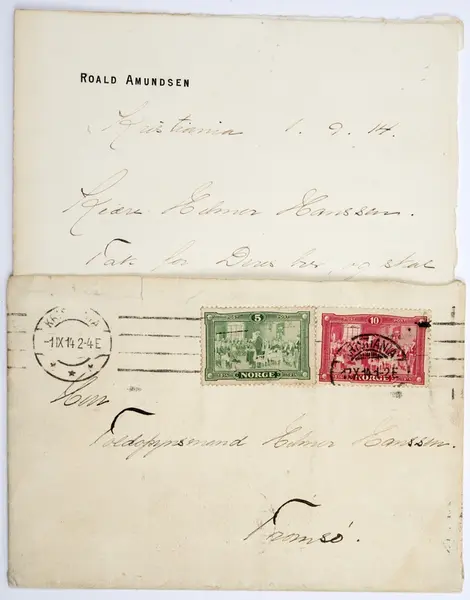 ROALD AMUNDSEN
Kristiania 1. 9. 14.
Kjære Helmer Hanssen.
Tak for Deres brev, og skal
-1 IX 14 2-4 E
5
NORGE
10
NORGE
KRISTIANIA
-1 IX 14 2-4 E
Herr
Toldopsynsmand Helmer Hanssen.
Tromsø.